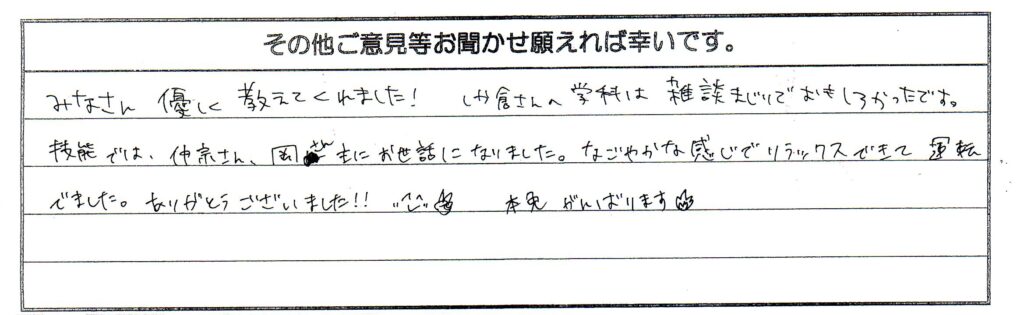 その他ご意見等お聞かせ願えれば幸いです。
みなさん 優しく 教えてくれました! 倉さんの 学科は 雑談まじりでおもしろかったです。
技能では、仲宗さん、岡さん 主にお世話になりました。なごやかな感じでリラックスできて 運転
でました。ありがとうございました!! 本免 がんばります